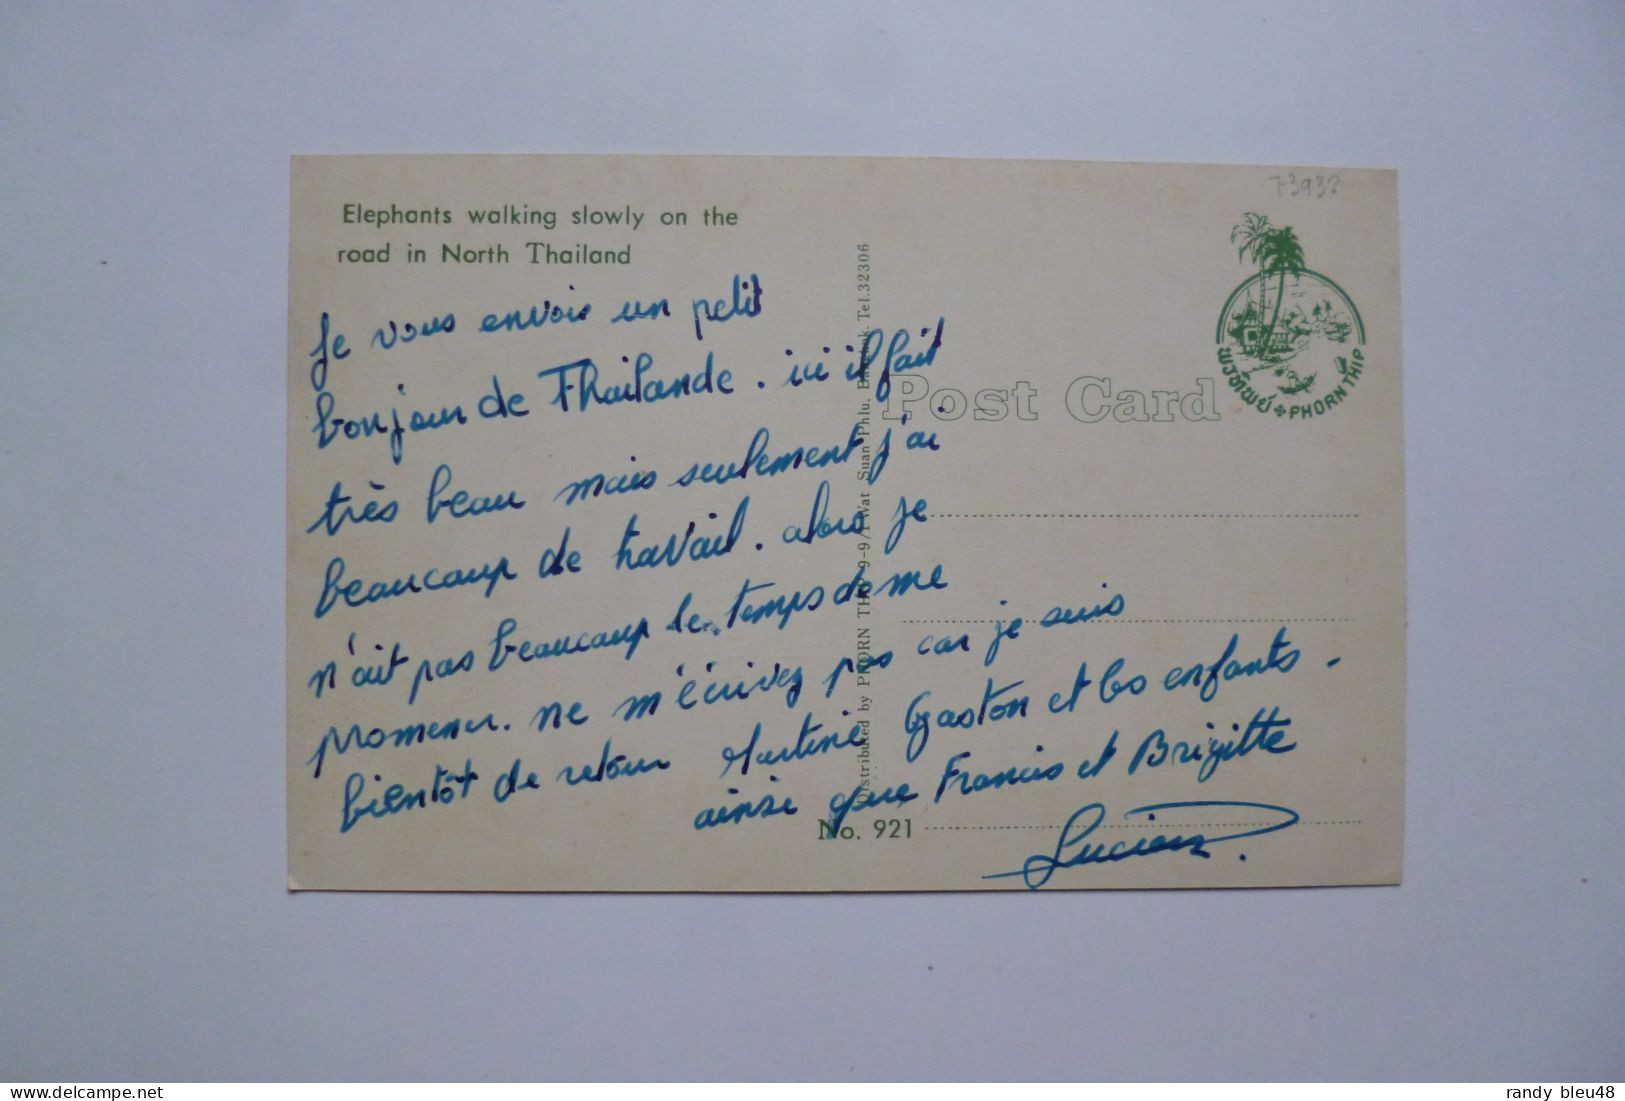 Elephants walking slowly on the
road in North Thailand
Je vous envois un petit
bonjour de Thailande. ici il fait
très beau mais seulement j'ai
beaucoup de travail. alors je
n'ait pas beaucoup le temps de me
promener. ne m'écrivez pas car je suis
bientôt de retour Martine Gaston et les enfants.
ainsi que Francis et Brigitte
Lucien.
Distributed by PHORN THIP 9-9/1 Wat Suan Phlu, Bangkok Tel. 32306
No. 921
Post Card
73932
พรทิพย์ PHORN THIP
randy bleu48